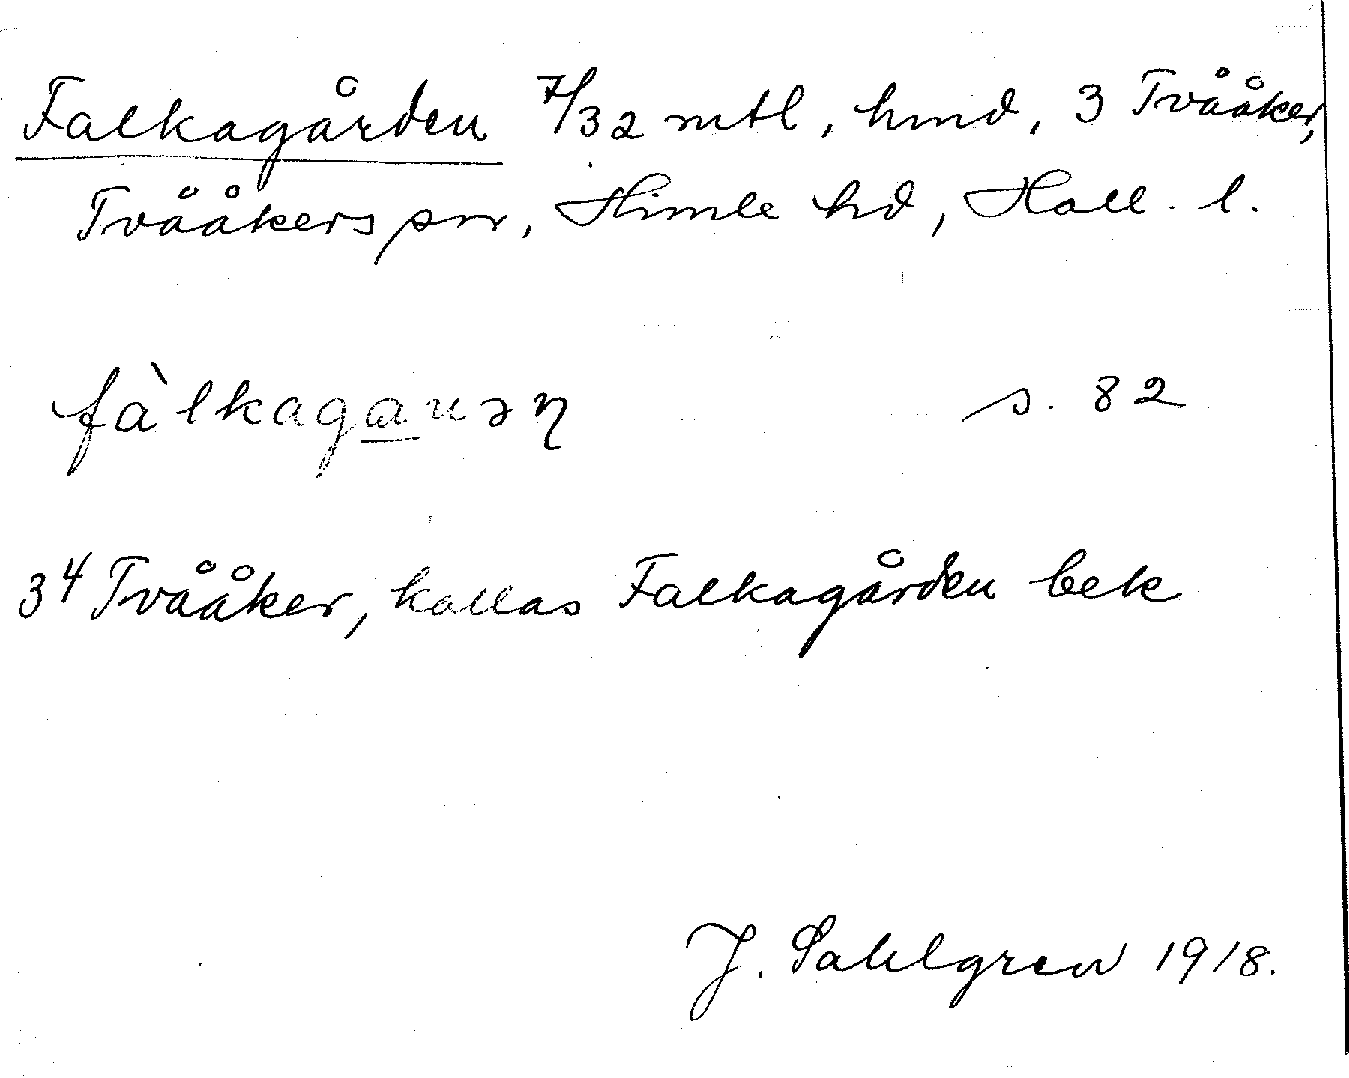 Falkagården 7/32 mtl, hmd, 3 Tvååker,
Tvååkers sn, Himle hd, Hall. l.
fàlkagauəη s. 82
3⁴ Tvååker, kallas Falkagården bek
J. Sahlgren 1918.